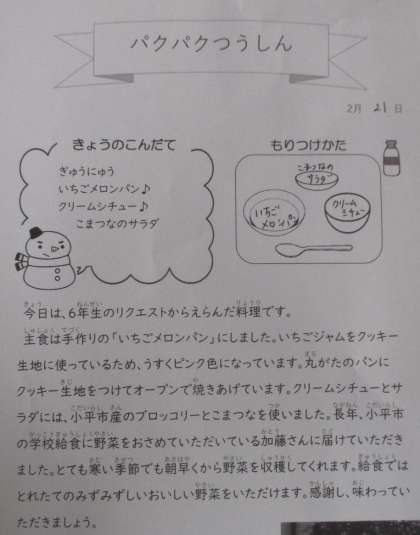 パクパクつうしん
2月 21 日
きょうのこんだて
ぎゅうにゅう
いちごメロンパン♪
クリームシチュー♪
こまつなのサラダ
もりつけかた
こまつなの
サラダ
いちご
メロンパン
クリーム
シチュー
今日は、6年生のリクエストからえらんだ料理です。
主食は手作りの「いちごメロンパン」にしました。いちごジャムをクッキー
生地に使っているため、うすくピンク色になっています。丸がたのパンに
クッキー生地をつけてオーブンで焼きあげています。クリームシチューとサ
ラダには、小平市産のブロッコリーとこまつなを使いました。長年、小平市
の学校給食に野菜をおさめていただいている加藤さんに届けていただき
ました。とても寒い季節でも朝早くから野菜を収穫してくれます。給食では
とれたてのみずみずしいおいしい野菜をいただけます。感謝し、味わってい
ただきましょう。